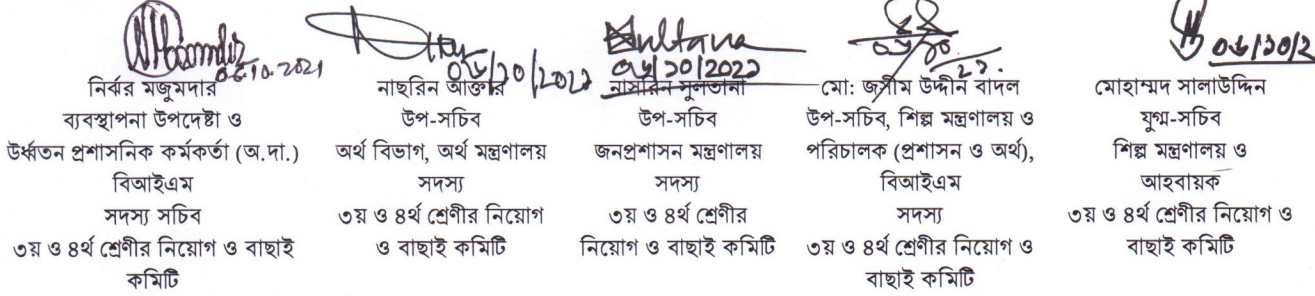 06.10.2021
০৬/১০/২০২১
Sultana
০৬/১০/২০২১
নির্ঝর মজুমদার
ব্যবস্থাপনা উপদেষ্টা ও
উর্ধ্বতন প্রশাসনিক কর্মকর্তা (অ.দা.)
বিআইএম
সদস্য সচিব
৩য় ও ৪র্থ শ্রেণীর নিয়োগ ও বাছাই
কমিটি
নাছরিন আক্তার
উপ-সচিব
অর্থ বিভাগ, অর্থ মন্ত্রণালয়
সদস্য
৩য় ও ৪র্থ শ্রেণীর নিয়োগ
ও বাছাই কমিটি
নাসরিন সুলতানা
উপ-সচিব
জনপ্রশাসন মন্ত্রণালয়
সদস্য
৩য় ও ৪র্থ শ্রেণীর
নিয়োগ ও বাছাই কমিটি
মো: জসীম উদ্দীন বাদল
উপ-সচিব, শিল্প মন্ত্রণালয় ও
পরিচালক (প্রশাসন ও অর্থ),
বিআইএম
সদস্য
৩য় ও ৪র্থ শ্রেণীর নিয়োগ ও
বাছাই কমিটি
মোহাম্মদ সালাউদ্দিন
যুগ্ম-সচিব
শিল্প মন্ত্রণালয় ও
আহবায়ক
৩য় ও ৪র্থ শ্রেণীর নিয়োগ ও
বাছাই কমিটি